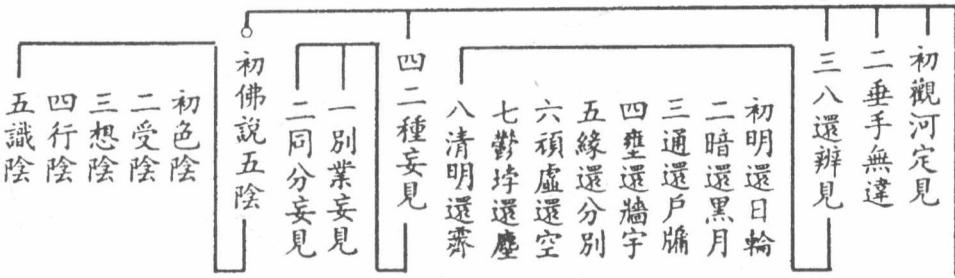 初觀河定見
二垂手無違
三八還辨見
初明還日輪
二暗還黑月
三通還戶牖
四壅還牆宇
五緣還分別
六頑虛還空
七鬱𡋯還塵
八清明還霽
四二種妄見
一別業妄見
二同分妄見
初佛說五陰
初色陰
二受陰
三想陰
四行陰
五識陰